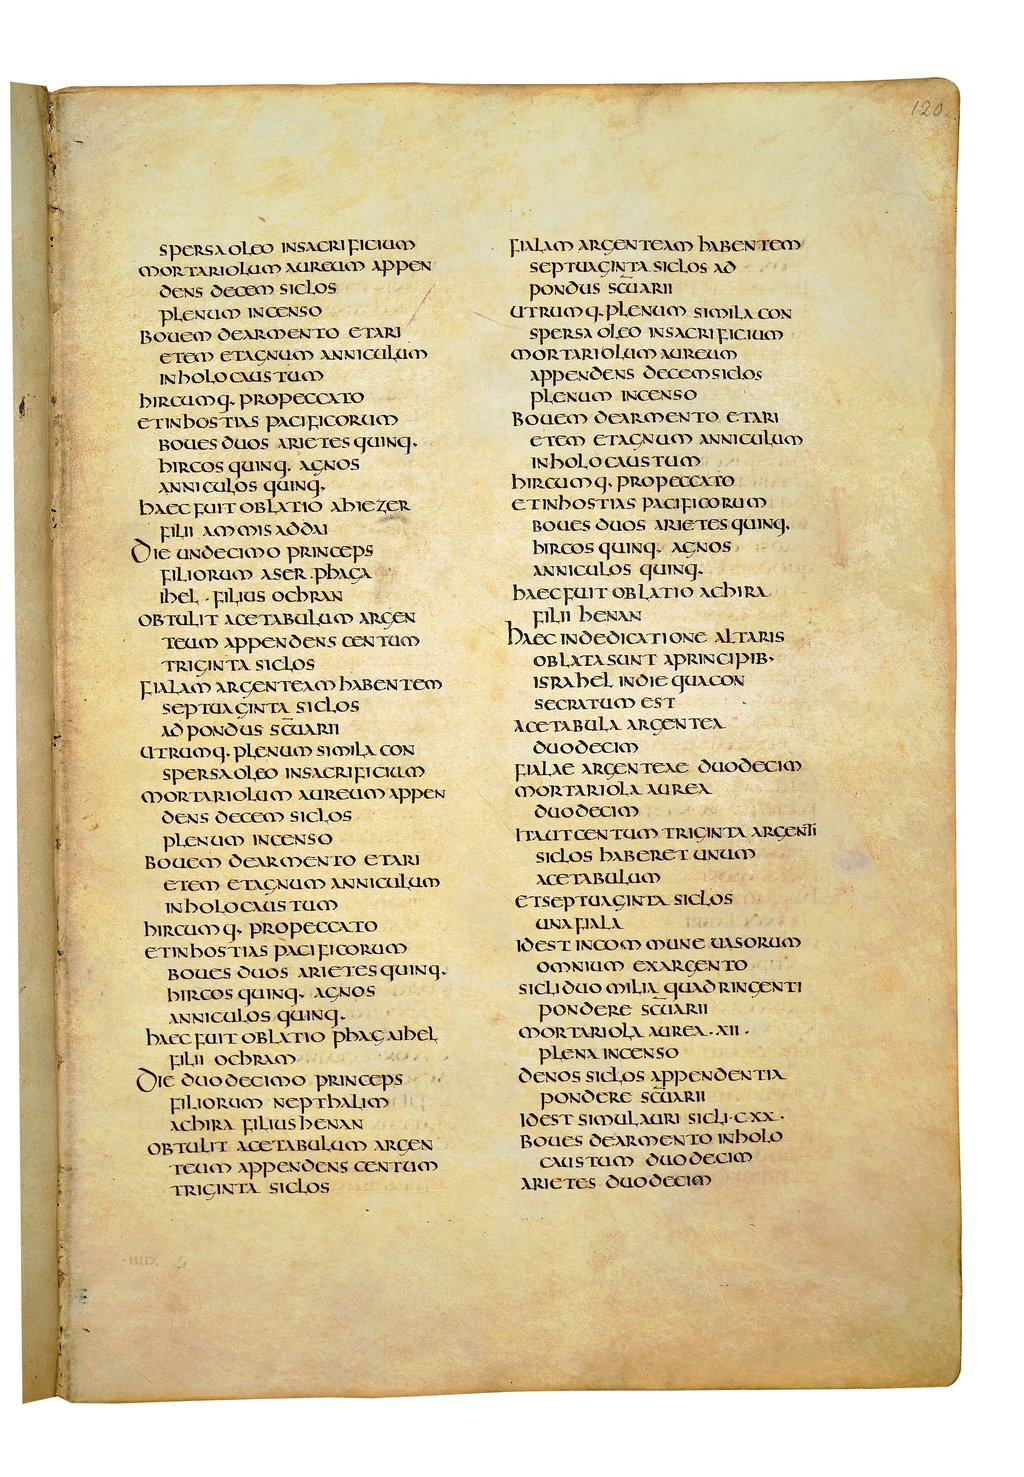 120
spersa oleo in sacrificium
mortariolum aureum appen
dens decem siclos
plenum incenso
bouem de armento et ari
etem et agnum anniculum
in holocaustum
hircumq· pro peccato
et in hostias pacificorum
boues duos arietes quinq·
hircos quinq· agnos
anniculos quinq·
haec fuit oblatio ahiezer
filii ammisaddai
Die undecimo princeps
filiorum aser · phaga
ihel · filius ochran
obtulit acetabulum argen
teum appendens centum
triginta siclos
fialam argenteam habentem
septuaginta siclos
ad pondus sc̄uarii
utrumq· plenum simila con
spersa oleo in sacrificium
mortariolum aureum appen
dens decem siclos
plenum incenso
bouem de armento et ari
etem et agnum anniculum
in holocaustum
hircumq· pro peccato
et in hostias pacificorum
boues duos arietes quinq·
hircos quinq· agnos
anniculos quinq·
haec fuit oblatio phagaihel
filii ochram
Die duodecimo princeps
filiorum nepthalim
achira filius henan
obtulit acetabulum argen
teum appendens centum
triginta siclos
fialam argenteam habentem
septuaginta siclos ad
pondus sc̄uarii
utrumq· plenum simila con
spersa oleo in sacrificium
mortariolum aureum
appendens decem siclos
plenum incenso
bouem de armento et ari
etem et agnum anniculum
in holocaustum
hircumq· pro peccato
et in hostias pacificorum
boues duos arietes quinq·
hircos quinq· agnos
anniculos quinq·
haec fuit oblatio achira
filii henan
Haec in dedicatione altaris
oblata sunt a principib·
israhel in die qua con
secratum est
acetabula argentea
duodecim
fialae argenteae duodecim
mortariola aurea
duodecim
ita ut centum triginta argenti
siclos haberet unum
acetabulum
et septuaginta siclos
una fiala
id est in commune uasorum
omnium ex argento
sicli duo milia quadringenti
pondere sc̄uarii
mortariola aurea · xii ·
plena incenso
denos siclos appendentia
pondere sc̄uarii
id est simul auri sicli · cxx ·
boues de armento in holo
caustum duodecim
arietes duodecim